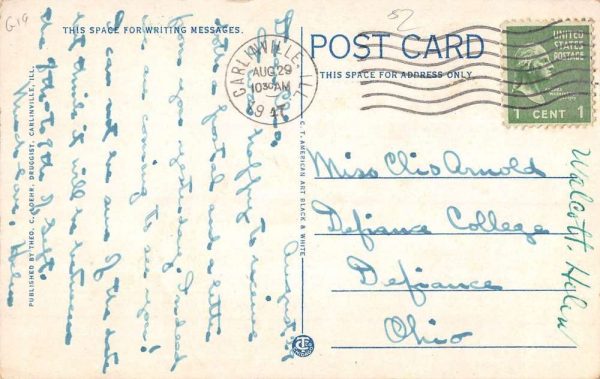 G19
52
THIS SPACE FOR WRITING MESSAGES.
POST CARD
THIS SPACE FOR ADDRESS ONLY.
CARLINVILLE, ILL.
AUG 29
10 30 AM
UNITED
STATES
POSTAGE
1 CENT 1
August
happy to receive
both a postal and a letter
from you yesterday. Indeed
we are coming to see you!
I can not be sure of the date
but think it will be between
the of Sept.
Much love, Helen
PUBLISHED BY THEO. C. LOEHR, DRUGGIST, CARLINVILLE, ILL.
C. T. AMERICAN ART BLACK & WHITE
Miss Clio Arnold
Defiance College
Defiance
Ohio
Walcott Helen